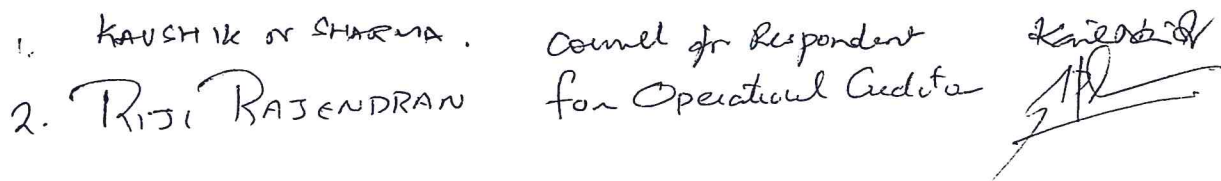 1. KAUSHIK N SHARMA. Counsel for Respondent Kaushik
2. RIJI RAJENDRAN for Operational Creditor